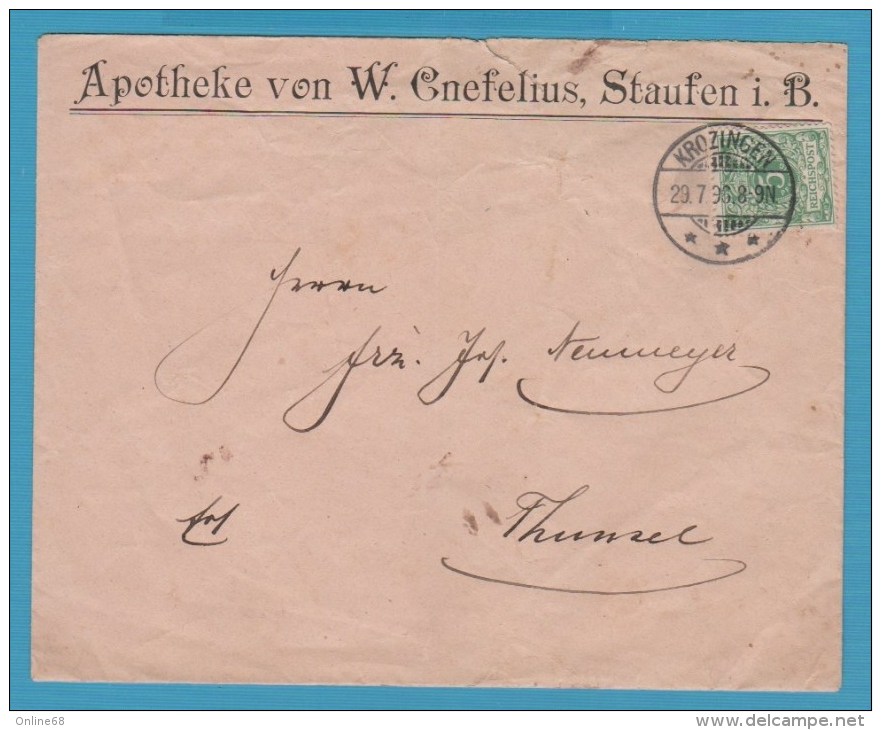 Apotheke von W. Cnefelius, Staufen i. B.
KROZINGEN
29.7.96.8-9N
5
REICHSPOST
Herrn
Jos. Neumeyer
Thunsel
Online68
delcampe.net